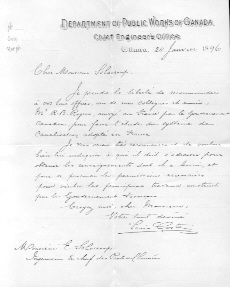 DEPARTMENT OF PUBLIC WORKS OF CANADA,
CHIEF ENGINEER'S OFFICE
Ottawa 20 Janvier 1896
Cher Monsieur
Je prends la liberté de recommander
à vos bons offices, un de mes collègues et amis
Mr R. B. Rogers envoyé en France par le Gouvernement
Canadien, pour faire l'étude des systèmes de
Canalisation adoptés en France
Je vous serai reconnaissant de vouloir
bien lui indiquer à qui il doit s'adresser pour
obtenir les renseignements dont il a besoin, et
pour se procurer les permissions nécessaires
pour visiter les principaux travaux
que le Gouvernement
Croyez moi, cher Monsieur,
Votre tout dévoué
Louis Coste
Monsieur E.
Ingénieur en chef des Ponts et Chaussées